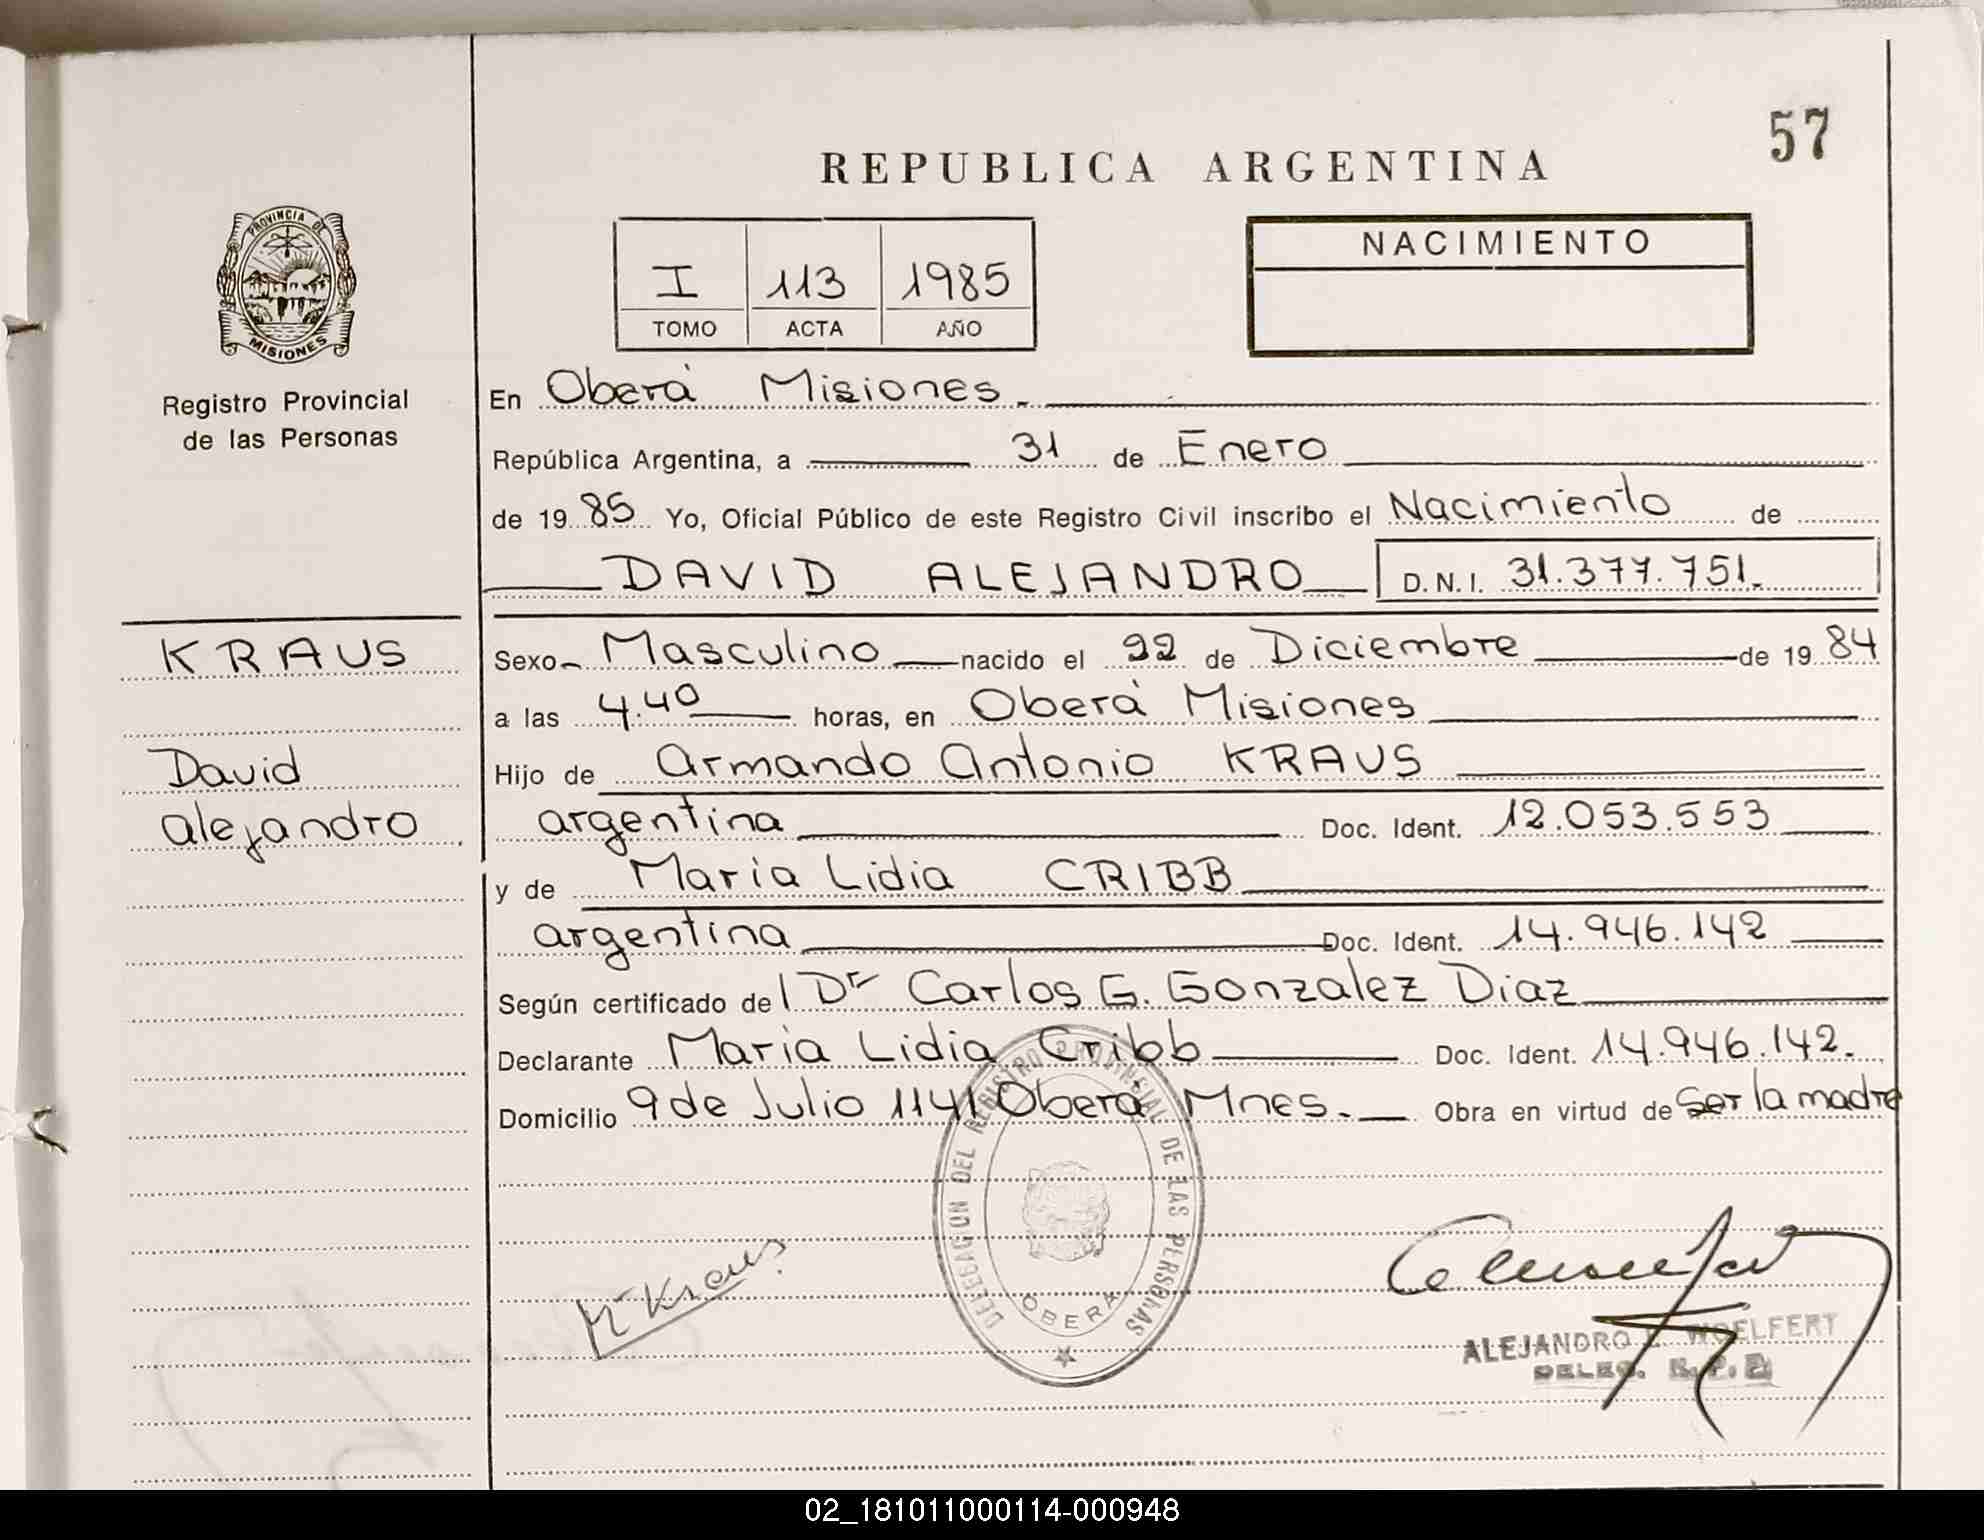 57
REPUBLICA ARGENTINA
PROVINCIA DE
MISIONES
Registro Provincial
de las Personas
I 113 1985
TOMO ACTA AÑO
NACIMIENTO
En Oberá Misiones.
República Argentina, a 31 de Enero
de 1985 Yo, Oficial Público de este Registro Civil inscribo el Nacimiento de
DAVID ALEJANDRO D.N.I. 31.377.751.
KRAUS
David
alejandro
Sexo Masculino nacido el 22 de Diciembre de 1984
a las 4.40 horas, en Oberá Misiones
Hijo de Armando Antonio KRAUS
argentina Doc. Ident. 12.053.553
y de Maria Lidia CRIBB
argentina Doc. Ident. 14.946.142
Según certificado del Dr Carlos G. Gonzalez Diaz
Declarante Maria Lidia Cribb Doc. Ident. 14.946.142.
Domicilio 9 de Julio 1141 Oberá Mnes. Obra en virtud de Ser la madre
DELEGACION DEL REGISTRO PROVINCIAL DE LAS PERSONAS
OBERA
Kraus
ALEJANDRO WOELFERT
DELEG. R.P.P.
02_181011000114-000948